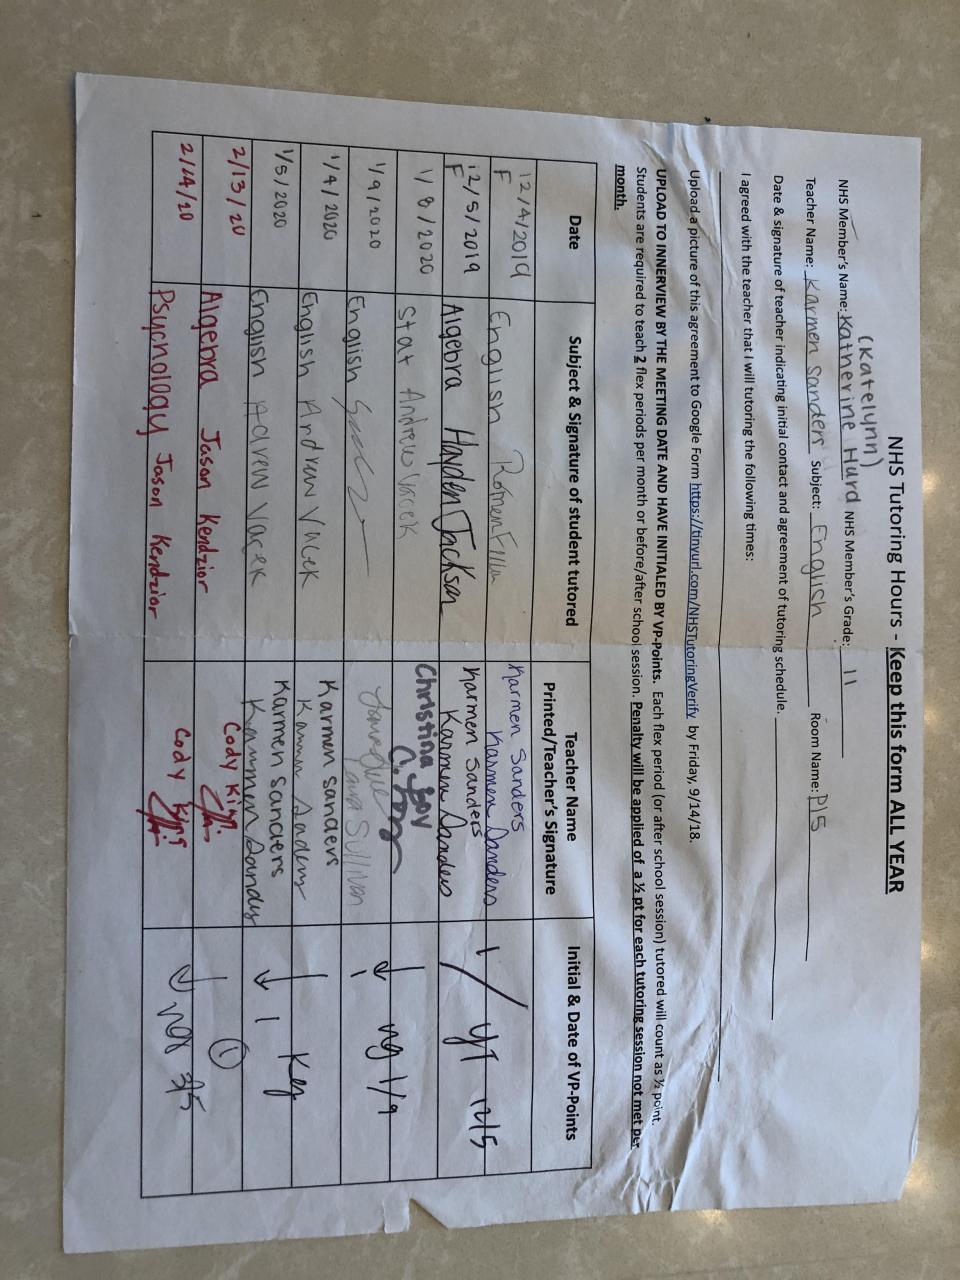 NHS Tutoring Hours - Keep this form ALL YEAR
(Katelynn)
NHS Member's Name: Katherine Hurd NHS Member's Grade: 11
Teacher Name: Karmen Sanders Subject: English Room Name: P15
Date & signature of teacher indicating initial contact and agreement of tutoring schedule.
I agreed with the teacher that I will tutoring the following times:
Upload a picture of this agreement to Google Form https://tinyurl.com/NHSTutoringVerify by Friday, 9/14/18.
UPLOAD TO INNERVIEW BY THE MEETING DATE AND HAVE INITIALED BY VP-Points. Each flex period (or after school session) tutored will count as ½ point.
Students are required to teach 2 flex periods per month or before/after school session. Penalty will be applied of a ½ pt for each tutoring session not met per
month.
Date Subject & Signature of student tutored Teacher Name Printed/Teacher's Signature Initial & Date of VP-Points
12/4/2019 F English Karmen Sanders Karmen Sanders 1
12/5/2019 F Algebra Hayden Jackson Karmen Sanders Karmen Sanders 12/5
1/8/2020 Stat Andrew Vacek Christina Gov
1/9/2020 English Sullivan 1 1/9
1/4/2020 English Andrew Vacek Karmen Sanders Karmen Sanders
1/5/2020 English Adrew Vacek Karmen Sanders Karmen Sanders 1
2/13/20 Algebra Jason Kendzior Cody King 1
2/14/20 Psychology Jason Kendzior Cody King 3/5